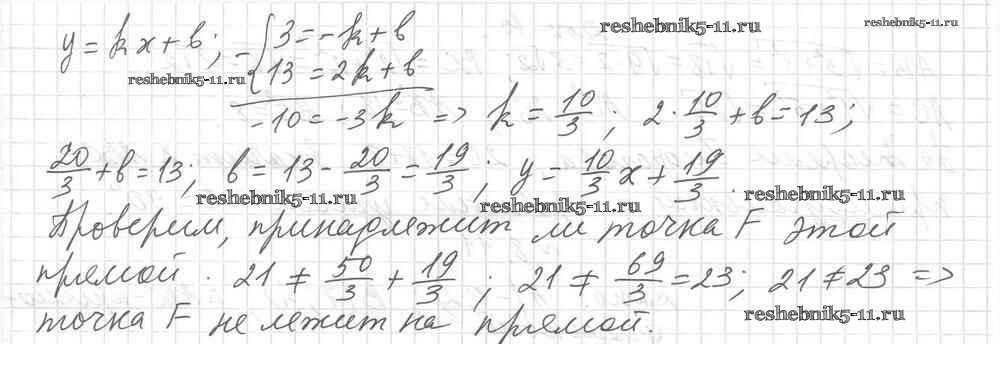 y = kx + b; - { 3 = -k + b reshebnik5-11.ru reshebnik5-11.ru
13 = 2k + b
reshebnik5-11.ru
-10 = -3k => k = 10/3; 2·10/3 + b = 13;
20/3 + b = 13; b = 13 - 20/3 = 19/3; y = 10/3 x + 19/3.
reshebnik5-11.ru reshebnik5-11.ru reshebnik5-11.ru
Проверим, принадлежит ли точка F этой
прямой. 21 ≠ 50/3 + 19/3; 21 ≠ 69/3 = 23; 21 ≠ 23 =>
reshebnik5-11.ru
точка F не лежит на прямой.